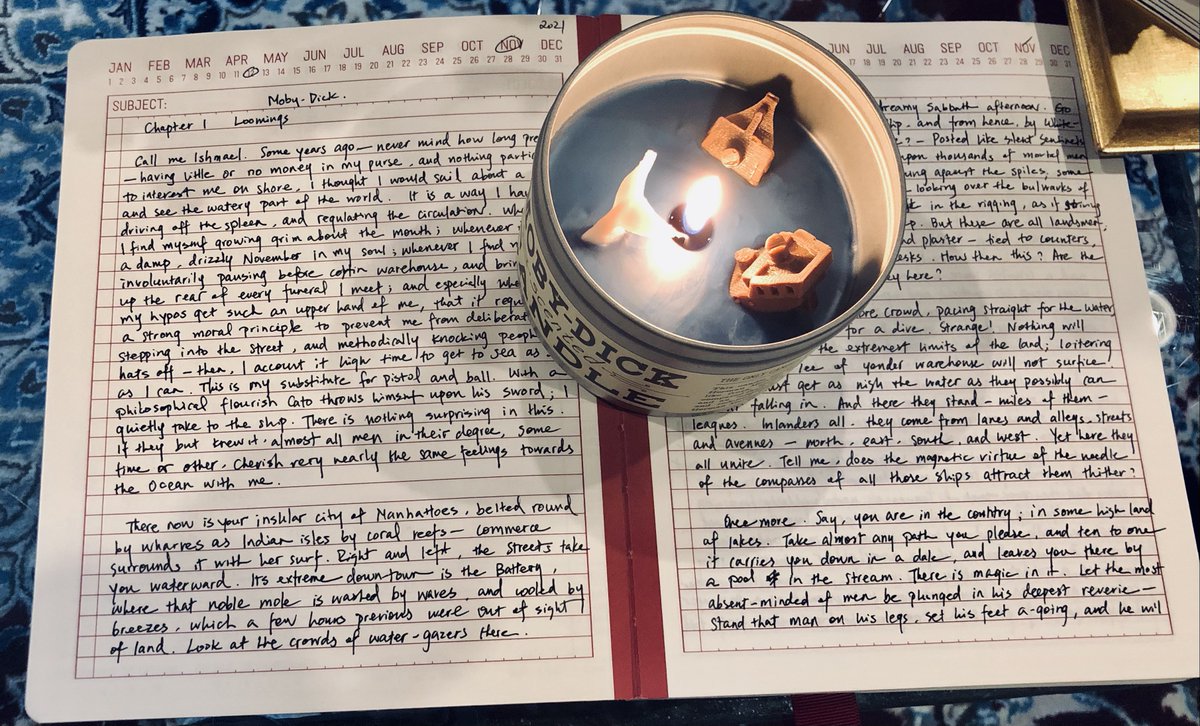 2021
JAN FEB MAR APR MAY JUN JUL AUG SEP OCT NOV DEC
1 2 3 4 5 6 7 8 9 10 11 12 13 14 15 16 17 18 19 20 21 22 23 24 25 26 27 28 29 30 31
SUBJECT: Moby-Dick.
Chapter 1 Loomings
Call me Ishmael. Some years ago — never mind how long pre
— having little or no money in my purse, and nothing parti
to interest me on shore, I thought I would sail about a
and see the watery part of the world. It is a way I hav
driving off the spleen, and regulating the circulation. Wh
I find myself growing grim about the mouth; whenever
a damp, drizzly November in my soul; whenever I find
involuntarily pausing before coffin warehouse, and brin
up the rear of every funeral I meet; and especially whe
my hypos get such an upper hand of me, that it requ
a strong moral principle to prevent me from deliberat
stepping into the street, and methodically knocking people
hats off — then, I account it high time to get to sea as
as I can. This is my substitute for pistol and ball. With a
philosophical flourish Cato throws himself upon his sword; I
quietly take to the ship. There is nothing surprising in this.
If they but knew it, almost all men in their degree, some
time or other, cherish very nearly the same feelings towards
the Ocean with me.
There now is your insular city of Manhattoes, belted round
by wharves as Indian isles by coral reefs — commerce
surrounds it with her surf. Right and left, the streets take
you waterward. Its extreme downtown is the Battery,
where that noble mole is washed by waves, and cooled by
breezes, which a few hours previous were out of sight
of land. Look at the crowds of water-gazers there.
OBY-DICK
THE ONLY
JUN JUL AUG SEP OCT NOV DEC
dreamy Sabbath afternoon. Go
and from hence, by White-
? — Posted like silent sentinels
upon thousands of mortal men
against the spiles, some
looking over the bulwarks of
in the rigging, as if striving
But these are all landsmen;
and plaster — tied to counters,
How then this? Are the
here?
ore crowd, pacing straight for the water
for a dive. Strange! Nothing will
the extremest limits of the land; loitering
lee of yonder warehouse will not suffice.
ust get as nigh the water as they possibly can
falling in. And there they stand — miles of them —
leagues. Inlanders all, they come from lanes and alleys, streets
and avenues — north, east, south, and west. Yet here they
all unite. Tell me, does the magnetic virtue of the needle
of the compasses of all those ships attract them thither?
Once more. Say, you are in the country; in some high land
of lakes. Take almost any path you please, and ten to one
it carries you down in a dale, and leaves you there by
a pool in the stream. There is magic in it. Let the most
absent-minded of men be plunged in his deepest reverie —
stand that man on his legs, set his feet a-going, and he will